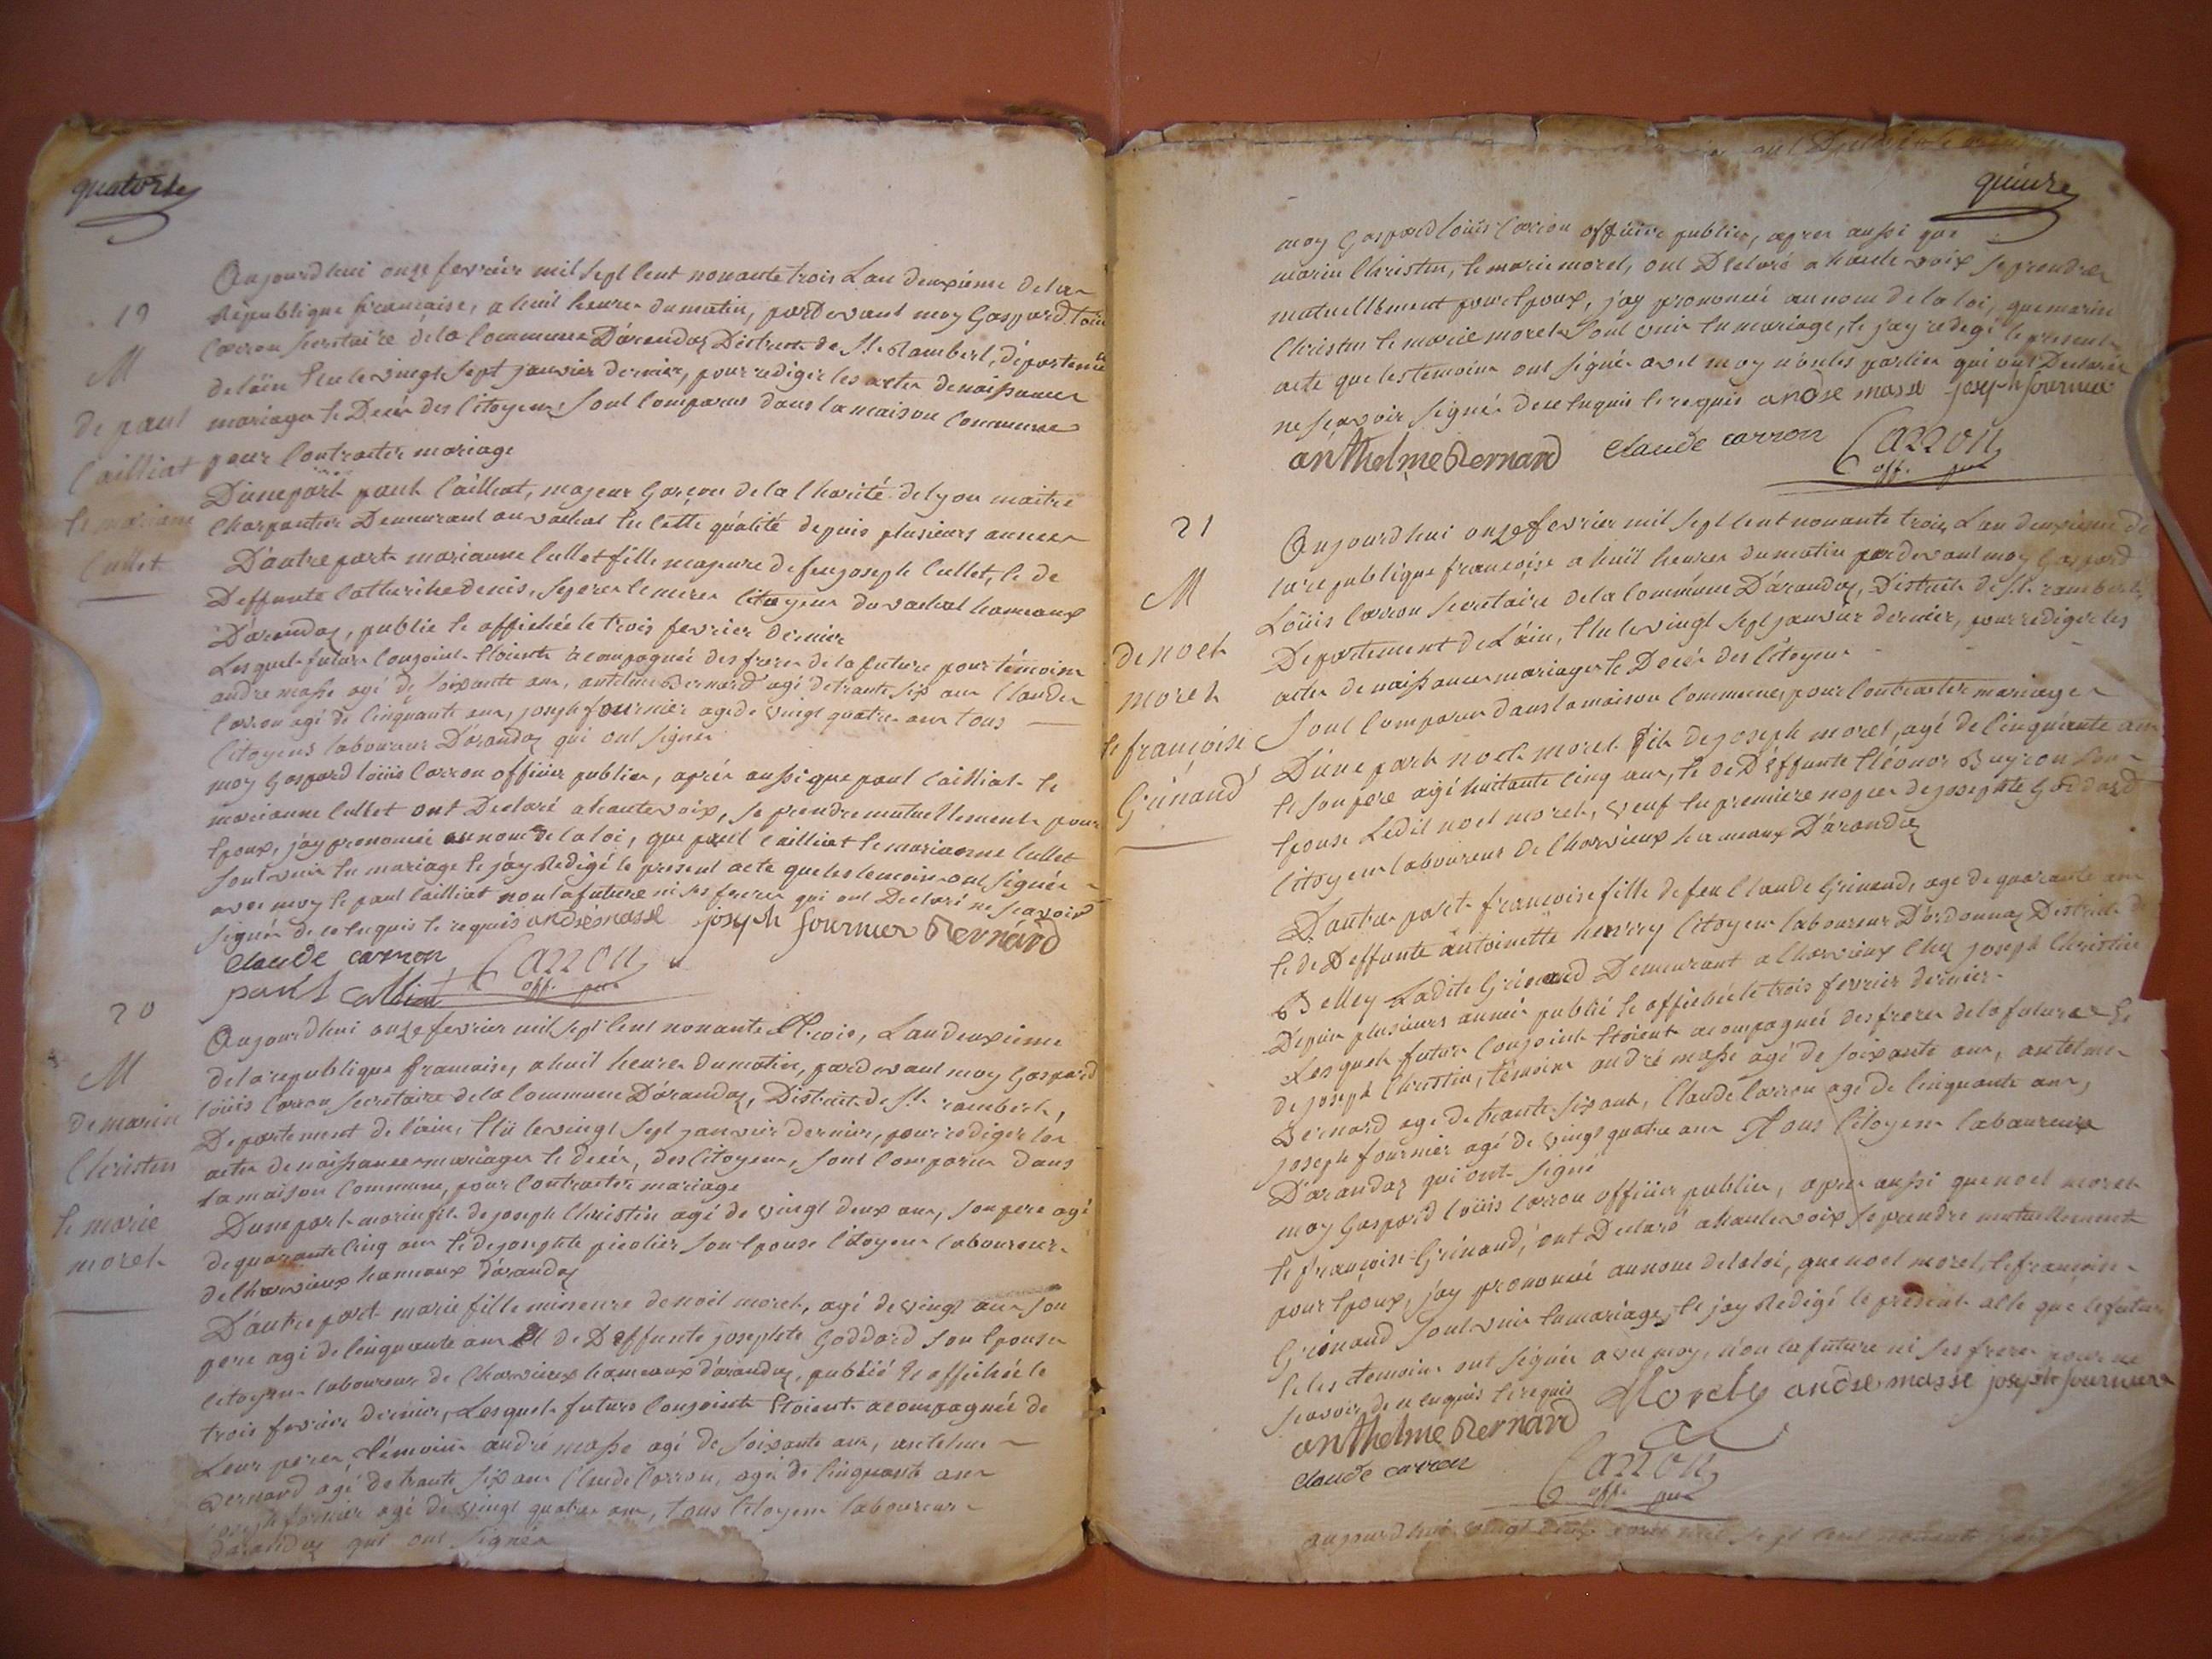 quatorze
19
M
de paul
Cailliat
et mariane
Cullet
Aujourd'hui onze fevrier mil sept Cent nonante trois Lan deuxieme de la
Republique francaise, a huit heures du matin, pardevant moy Gaspard Loüis
Carron secretaire de la Commune D'arandaz District de St. Rambert, département
de laïn Elu le vingt sept janvier dernier, pour rediger les actes de naissances
mariages et Decès des Citoyens, sont Comparus dans la maison Commune
pour Contracter mariage
D'une part paul Cailliat, majeur Garçon de la Charité de lyon maitre
Charpentier Demeurant au vachat En Cette qualité depuis plusieurs années
D'autre part marianne Cullet fille majeure de feu joseph Cullet, et de
Deffunte Catherine denis, ses pere et mere Citoyens du vachat hameaux
D'arandaz, publie et affichée le trois fevrier dernier
Lesquels futurs Conjoints Etoients acompagnés des freres de la future pour témoins
andre masse agé de soixante ans, antelme Bernard agé de trante six ans Claude
Carron agé de Cinquante ans, joseph fournier agé de vingt quatre ans tous
Citoyens laboureurs D'arandaz qui ont signés
moy Gaspard loüis Carron officier publics, après aussi que paul Cailliat et
marianne Cullet ont Declaré a haute voix, se prendre mutuellement pour
Epoux, j'ay prononcé au nom de la loi, que paul Cailliat et marianne Cullet
sont unis En mariage et j'ay Redigé le present acte que les temoins ont signés
avec moy et paul Cailliat non la future ni ses freres qui ont Declaré ne scavoir
signés de ce Enquis et requis andré masse joseph fournier Bernard
Claude carron Carron
paul Calliat off. pub
20
M
de marin
Christin
et marie
morel
Aujourd'hui onze fevrier mil sept Cent nonante Trois, Lan deuxieme
de la republique francaise, a huit heures du matin, pardevant moy Gaspard
loüis Carron secretaire de la Commune D'arandaz, District de St. rambert,
Departement de l'ain, Elü le vingt sept janvier dernier, pour rediger les
actes de naissances mariages et decès, des Citoyens, sont Comparus dans
la maison Commune, pour Contracter mariage
D'une part marin fils de joseph Christin agé de vingt deux ans, son pere agé
de quarante Cinq ans et de josephte picolier son Epouse Citoyens laboureurs
de Charvieux hameaux d'arandaz
D'autre part marie fille mineure de noël morel, agé de vingt ans son
pere agé de Cinquante ans Et de Deffunte josephte Goddard son Epouse
Citoyens laboureur de Charvieux hameaux d'arandaz, publié Et affichée le
trois fevrier dernier, Lesquels futurs Conjoints Etoients acompagnés de
Leurs peres, témoins andré masse agé de soixante ans, antelme
Bernard agé de trante six ans Claude Carron, agé de Cinquante ans
joseph fornier agé de vingt quatre ans, tous Citoyens laboureurs
darandaz qui ont signés
quinze
moy Gaspard loüis Carron officier publics, apres aussi que
marin Christin, et marie morel, ont Declaré a haute voix se prendre
mutuellement pour Epoux, j'ay prononcé au nom de la loi, que marin
Christin et marie morel sont unis En mariage, et j'ay redegé le present
acte que les temoins ont signés avec moy non les parties qui ont Declarés
ne scavoir signés de ce Enquis et requis andre masse joseph fournier
anthelme Bernard Claude carron Carron
off. pub
21
M
de noel
morel
et françoise
Grinand
Aujourd'hui onze fevrier mil sept Cent nonante trois, Lan deuxieme de
la republique françoise a huit heures du matin pardevant moy Gaspard
Loüis Carron secretaire de la Commune D'arandaz, District de St. rambert,
Departement de L'ain, Elu le vingt sept janvier dernier, pour rediger les
actes de naissances mariages et Decès des Citoyens
sont Comparus dans la maison Commune, pour Contracter mariage
D'une part noel morel fils de joseph morel, agé de Cinquante ans
et son pere agé huitante Cinq ans, et de Deffunte Eléonor Buyron son
Epouse Ledit noel morel, veuf En premiere nopces de josephte Goddard
Citoyens laboureurs de Charvieux hameaux D'arandaz
D'autre part francoise fille de feu Claude Grinand, agé de quarante ans
et de Deffunte antoinette henrry Citoyens laboureurs D'ordonnaz District de
Belley Ladite Grinand Demeurant a Charvieux Chez joseph Christin
Depuis plusieurs années publié et affichée le trois fevrier dernier
Lesquels futurs Conjoints Etoient acompagnés des freres de la future et
de joseph Christin, témoins andré masse agé de soixante ans, antelme
Bernard agé de trante six ans, Claude Carron agé de Cinquante ans,
joseph fournier agé de vingt quatre ans Tous Citoyens laboureurs
D'arandaz qui ont signé
moy Gaspard loüis Carron officier publics, apres aussi que noel morel
et françoise Grinand, ont Declaré a haute voix se prendre mutuellement
pour Epoux, j'ay prononcé au nom de la loi, que noel morel, et françoise
Grinand sont unis En mariage, et j'ay Redigé le present acte que le futur
et les temoins ont signés avec moy, non la future ni ses freres pour ne
scavoir de ce enquis et requis Morel andre masse joseph fournier
anthelme Bernard
Claude carron Carron
off. pub
aujourd'hui vingt mil sept Cent nonante